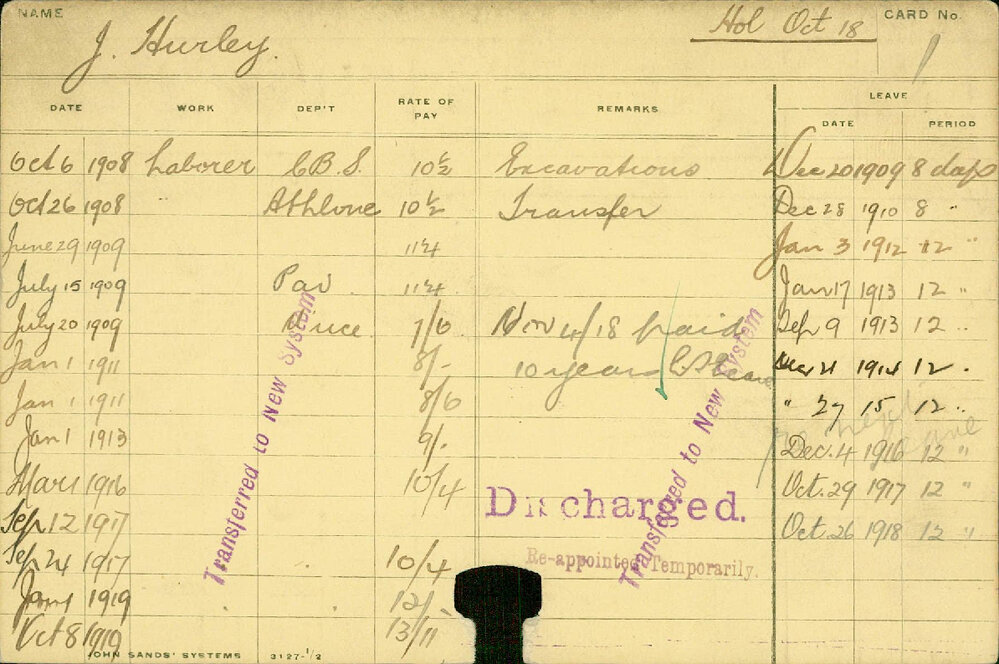 NAME
J. Hurley.
Hol Oct 18
CARD No.
1
DATE WORK DEP'T RATE OF PAY REMARKS LEAVE
DATE PERIOD
Oct 6 1908 Laborer C.B.S. 10½ Excavations Dec 20 1909 8 days
Oct 26 1908 Athlone 10½ Transfer Dec 28 1910 8 "
June 29 1909 11¼ Jan 3 1912 12 "
July 15 1909 Pav 11¼ Jan 17 1913 12 "
July 20 1909 7/6 Nov 4/18 paid Sep 9 1913 12 "
Jan 1 1911 8/- 10 years Leave 21 1914 12 "
Jan 1 1911 8/6 " 27 15 12 "
Jan 1 1913 9/- Dec. 4 1916 12 "
Mar 1 1916 10/4 Oct. 29 1917 12 "
Sep 12 1917 Discharged. Oct. 26 1918 12 "
Sep 24 1917 10/4 Re-appointed Temporarily.
1919 12/-
Oct 8 1919 13/11
Transferred to New System
Transferred to New System
JOHN SANDS' SYSTEMS 3127-1/2